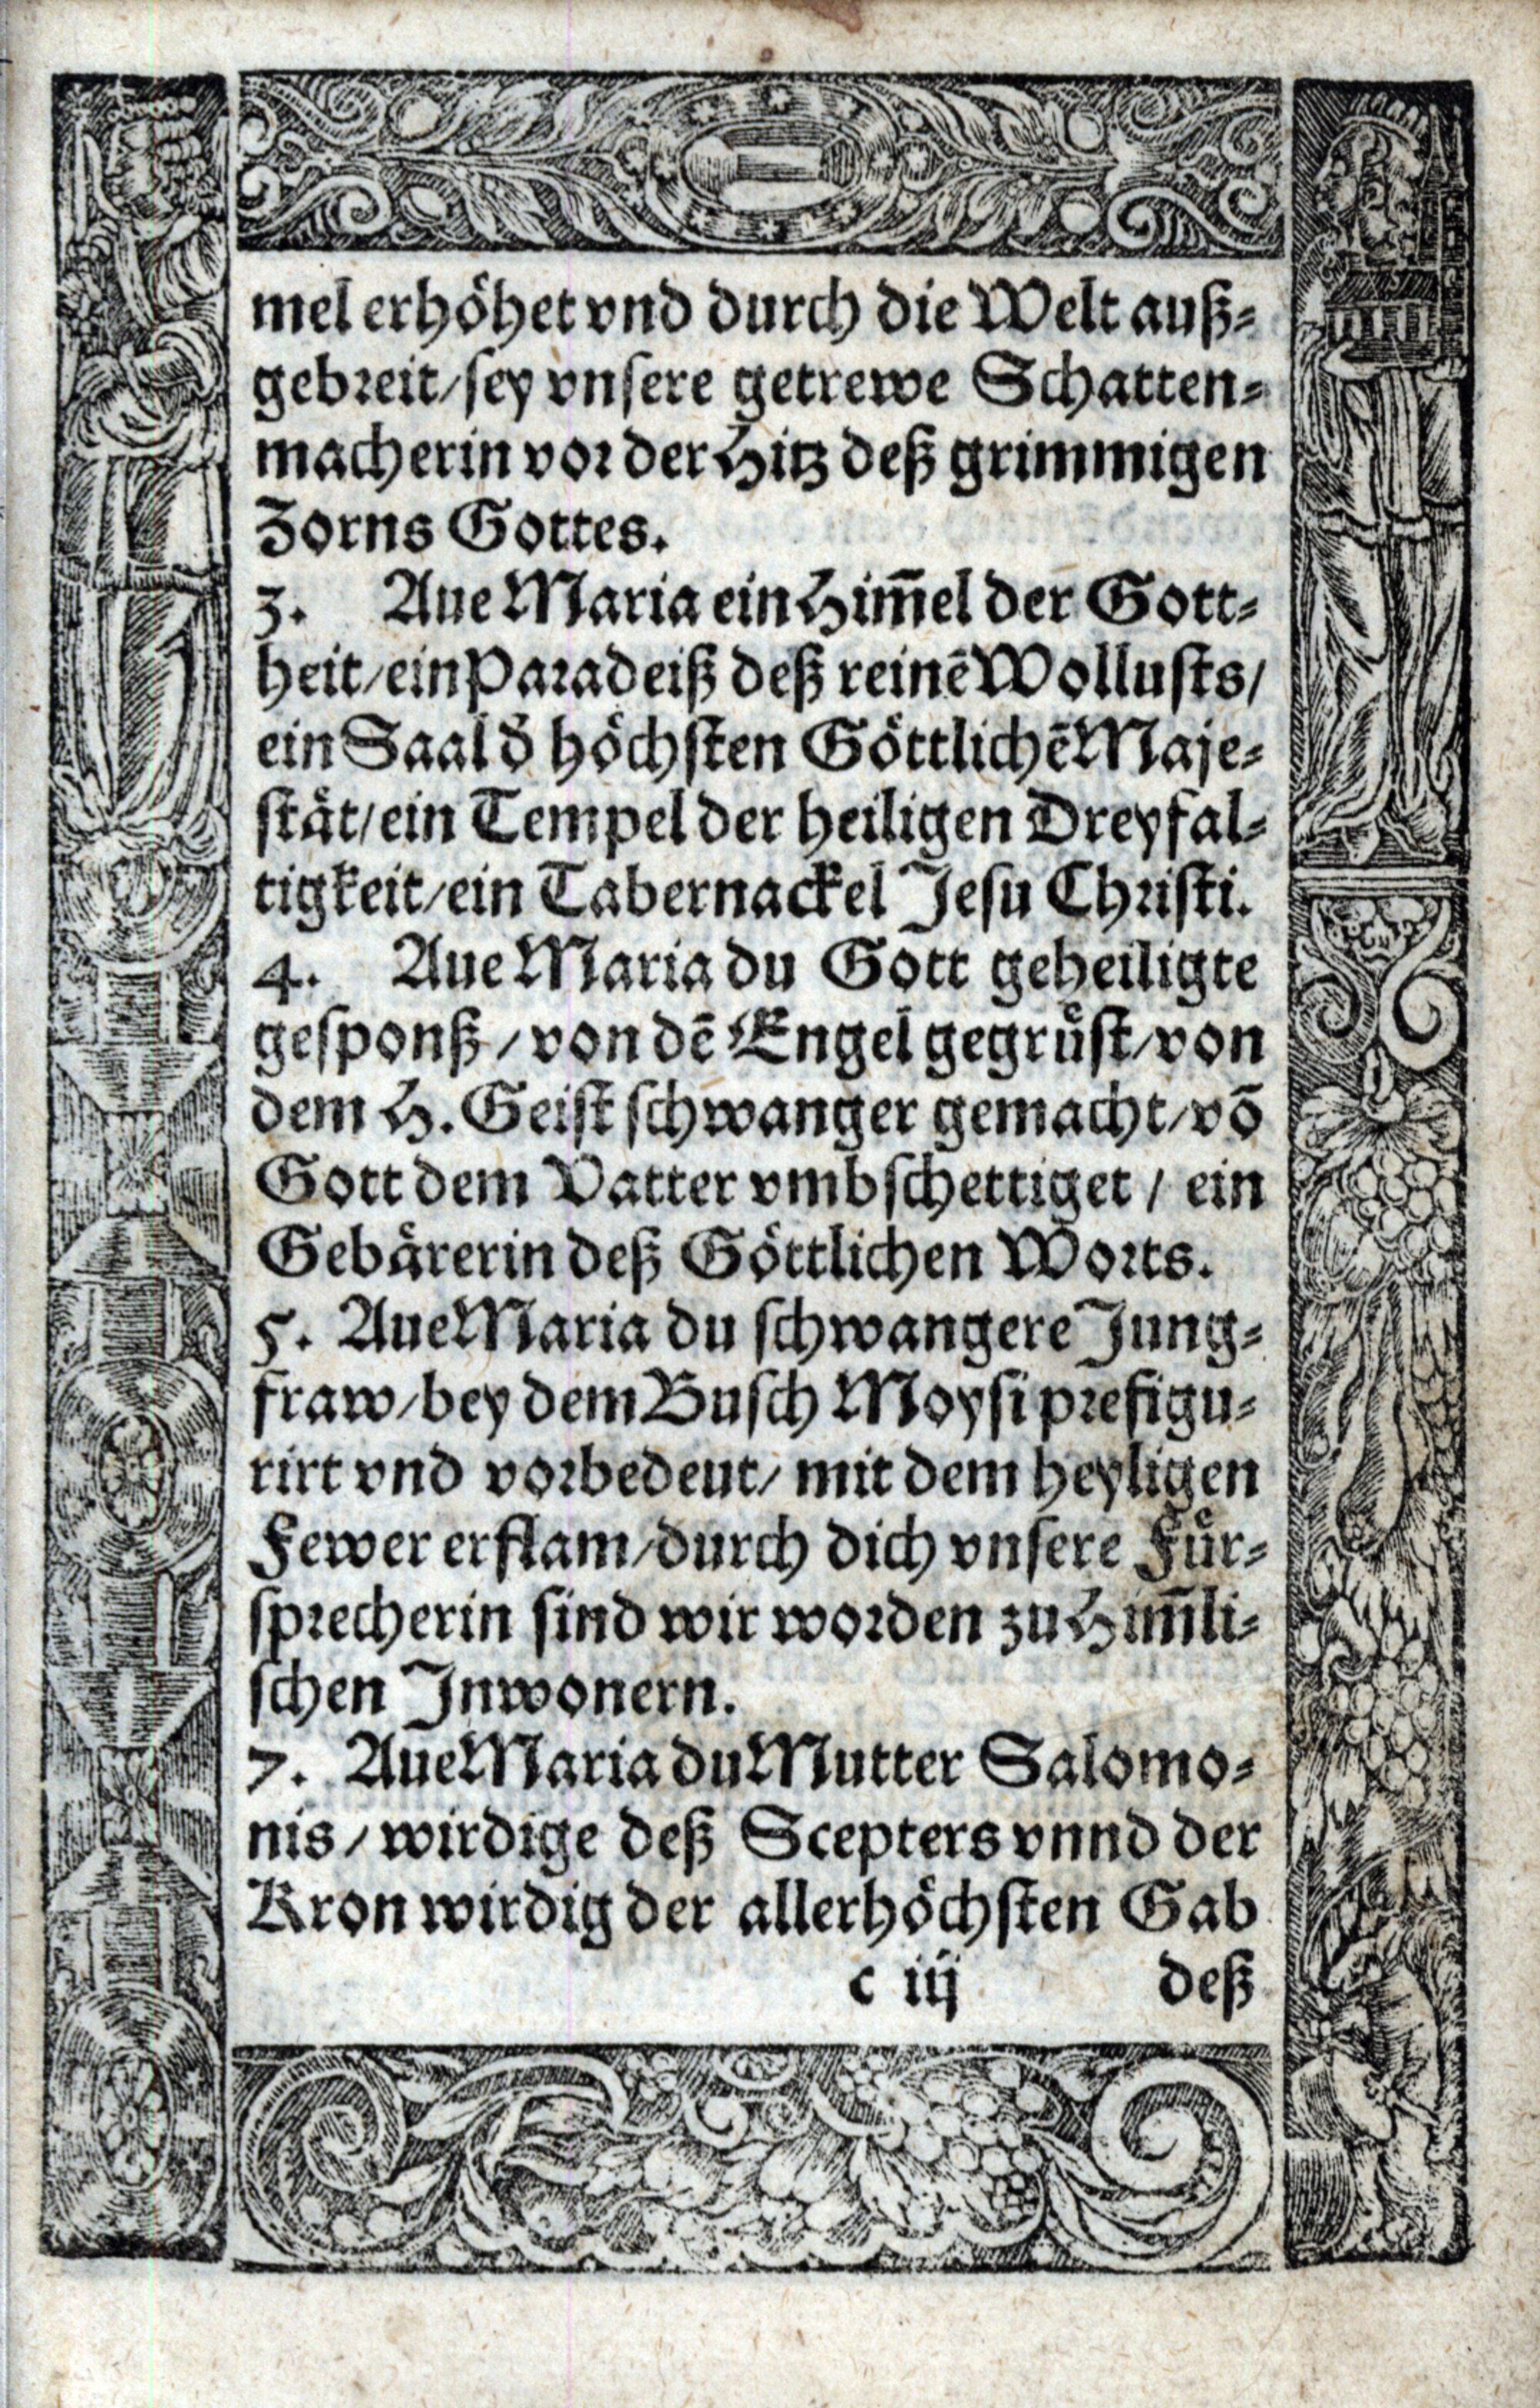 mel erhöhet vnd durch die Welt auß⸗
gebreit/sey vnsere getrewe Schatten⸗
macherin vor der Hitz deß grimmigen
Zorns Gottes.
3. Aue Maria ein Him̄el der Gott⸗
heit/ein Paradeiß deß reinē Wollusts/
ein Saal d̄ höchsten Göttlichē Maje⸗
stät/ein Tempel der heiligen Dreyfal⸗
tigkeit/ein Tabernackel Jesu Christi.
4. Aue Maria du Gott geheiligte
gesponß/von dē Engel gegrüst/von
dem H. Geist schwanger gemacht/vō
Gott dem Vatter vmbschettiget/ ein
Gebärerin deß Göttlichen Worts.
5. Aue Maria du schwangere Jung⸗
fraw/bey dem Busch Moysi prefigu⸗
rirt vnd vorbedeut/ mit dem heyligen
Fewer erflam/durch dich vnsere Für⸗
sprecherin sind wir worden zu Him̄li⸗
schen Inwonern.
7. Aue Maria du Mutter Salomo⸗
nis/wirdige deß Scepters vnnd der
Kron wirdig der allerhöchsten Gab
c iij deß